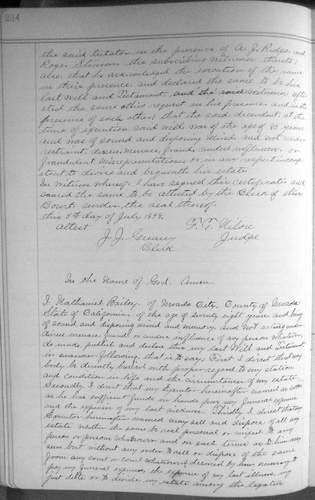 234
the said testator in the presence of A. J. Ridge and
Roger, the subscribing witnesses thereto;
also that he acknowledged the execution of the same
in their presence and declared the same to be his
last Will and Testament, and the said witnesses attes-
ted the same at his request in his presence and in the
presence of each other; that the said decedent, at the
time of execution said will was of the age of years
and was of sound and disposing mind and not under
restraint, menace, fraud, undue influence, or
fraudulent misrepresentations, or in any respect incomp-
etent to devise and bequeath his estate.
In witness whereof I have signed this Certificate and
caused the same to be attested by the Clerk of this
Court under the seal thereof,
this 5th day of July 1898.
Attest
J. J. Greany
Clerk
F. T. Nilon
Judge
In the Name of God. Amen.
I, Nathaniel Bailey, of Nevada City, County of Nevada
State of California, of the age of seventy eight years and being
of sound and disposing mind and memory, and not acting under
duress menace, fraud or undue influence of any person whatever
do make publish and declare this my last Will and Testament
in manner following, that is to say: First I direct that my
body be decently buried with proper regard to my station
and condition in life and the circumstances of my estate
Secondly I direct that my Executor hereinafter named as soon
as he has sufficient funds in hands pay my funeral expenses
and the expenses of my last sickness. Thirdly I direct that my
Executor hereinafter named may sell and dispose of all my
estate whether the same be real personal or mixed to any
person or persons whatsoever and on such terms as to him may
seem best without any order to sell or dispose of the same
from any court or courts whatsoever if deemed by him necessary to
pay my funeral expenses, the expenses of my last illness, my
just debts or to divide my estate among the legatees